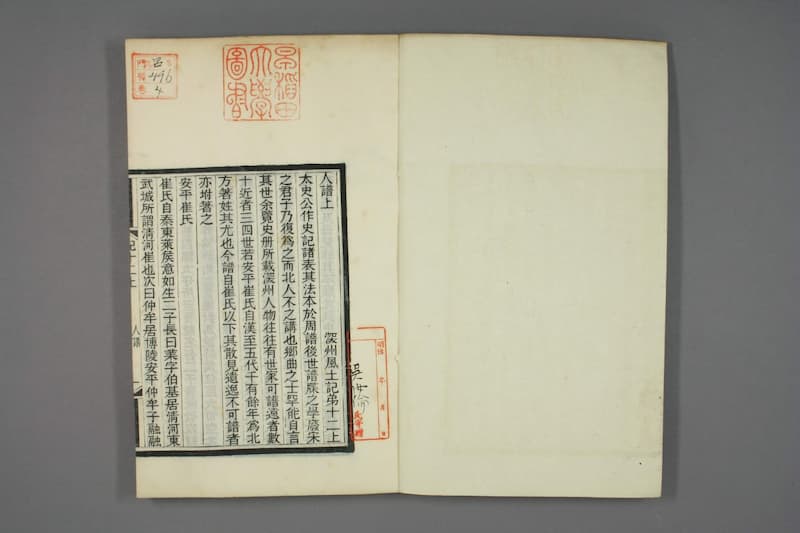 早稻田
大學
圖書
門號卷
496
4
人譜上 深州風土記弟十二上
太史公作史記諸表其法本於周譜後世譜牒之學廢宋
之君子乃復為之而北人不之講也鄉曲之士罕能自言
其世余覽史册所載深州人物往往有世家可譜遠者數
十近者三四世若安平崔氏自漢至五代千有餘年為北
方著姓其尤也今譜自崔氏以下其散見遺逸不可譜者
亦坿著之
安平崔氏
崔氏自秦東萊矦意如生二子長曰業字伯基居淸河東
武城所謂淸河崔也次曰仲牟居博陵安平仲牟子融融
記十二上 人譜 一
明治 年 月
吳汝綸
氏寄贈